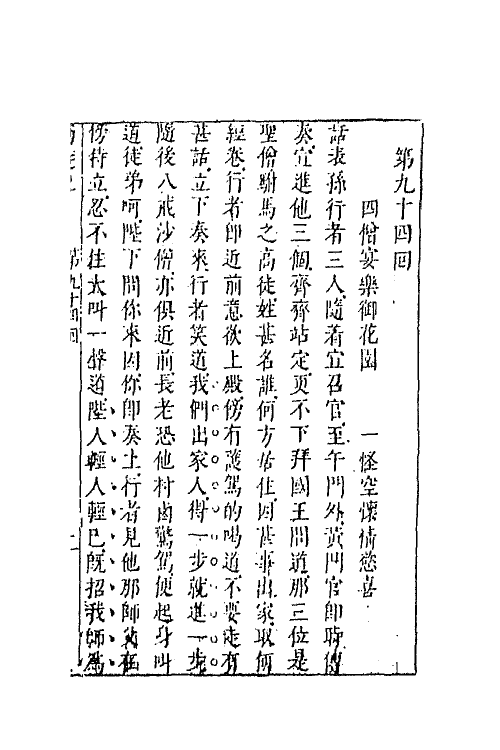 第九十四回
四僧宴樂御花園　一怪空懷情慾喜
話表孫行者三人隨着宣召官至午門外黃門官即時傳
奏宣進他三個齊齊站定更不下拜國王問道那三位是
聖僧駙馬之高徒姓甚名誰何方居住因甚事出家取何
經卷行者即近前意欲上殿傍有護駕的喝道不要走有
甚話立下奏來行者笑道我們出家人得一步就進一步
隨後八戒沙僧亦俱近前長老恐他村鹵驚駕便起身叫
道徒弟呵陛下問你來因你即奏上行者見他那師父在
傍侍立忍不住大叫一聲道陛人輕人輕已既招我師為
第九十四回